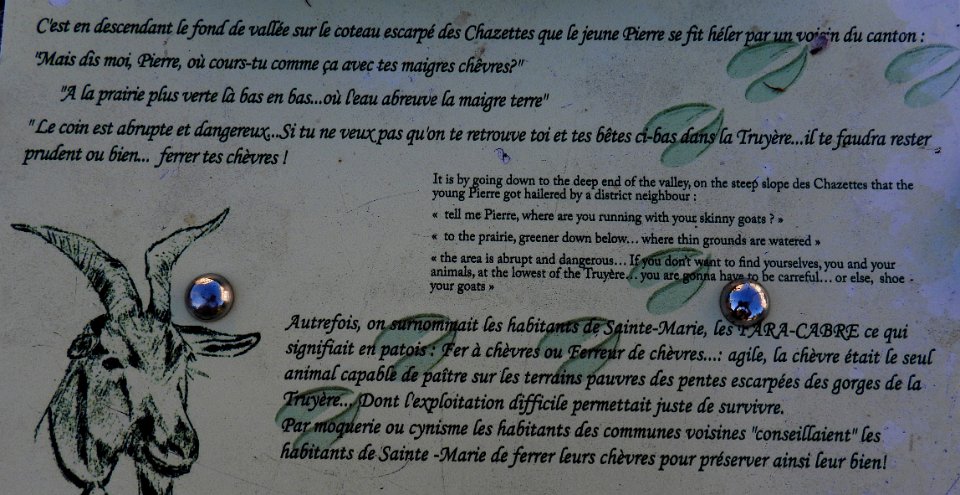 C'est en descendant le fond de vallée sur le coteau escarpé des Chazettes que le jeune Pierre se fit héler par un voisin du canton :
"Mais dis moi, Pierre, où cours-tu comme ça avec tes maigres chêvres?"
"A la prairie plus verte là bas en bas...où l'eau abreuve la maigre terre"
"Le coin est abrupte et dangereux...Si tu ne veux pas qu'on te retrouve toi et tes bêtes ci-bas dans la Truyère...il te faudra rester
prudent ou bien... ferrer tes chèvres !
It is by going down to the deep end of the valley, on the steep slope des Chazettes that the
young Pierre got hailered by a district neighbour :
« tell me Pierre, where are you running with your skinny goats ? »
« to the prairie, greener down below... where thin grounds are watered »
« the area is abrupt and dangerous... If you don't want to find yourselves, you and your
animals, at the lowest of the Truyère... you are gonna have to be carreful... or else, shoe
your goats »
Autrefois, on surnommait les habitants de Sainte-Marie, les FARA-CABRE ce qui
signifiait en patois : Fer à chèvres ou Ferreur de chèvres...: agile, la chèvre était le seul
animal capable de paître sur les terrains pauvres des pentes escarpées des gorges de la
Truyère... Dont l'exploitation difficile permettait juste de survivre.
Par moquerie ou cynisme les habitants des communes voisines "conseillaient" les
habitants de Sainte -Marie de ferrer leurs chèvres pour préserver ainsi leur bien!